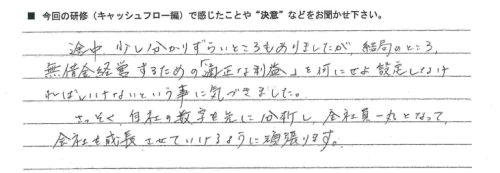 ■ 今回の研修（キャッシュフロー編）で感じたことや“決意”などをお聞かせ下さい。
途中 少し分かりずらいところもありましたが、結局のところ、
無借金経営するための「適正な利益」を何にせよ設定しなけ
ればいけないという事に気づきました。
さっそく、自社の数字を元に分析し、会社員一丸となって、
会社を成長させていけるように頑張ります。